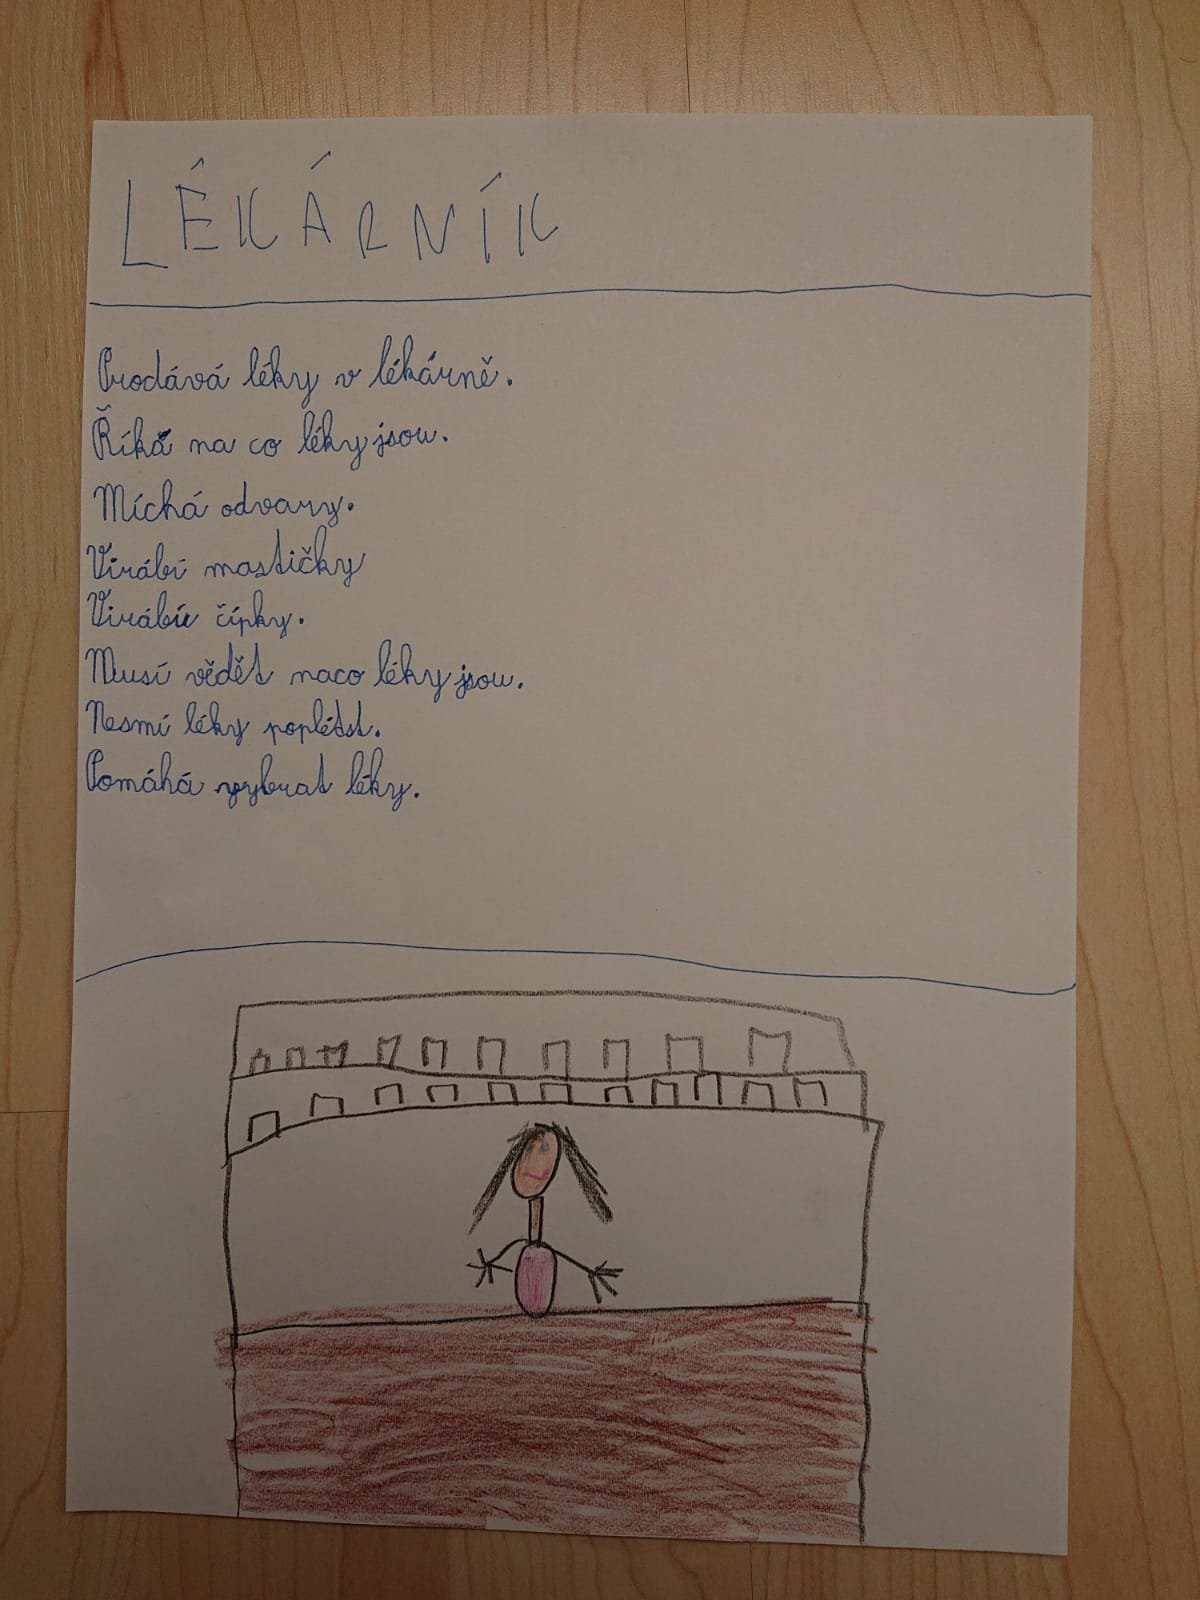 LÉKÁRNÍK
Prodává léky v lékárně.
Říká na co léky jsou.
Míchá odvary.
Virábí mastičky
Virábí čípky.
Musí vědět naco léky jsou.
Nesmí léky poplétst.
Pomáhá vybrat léky.